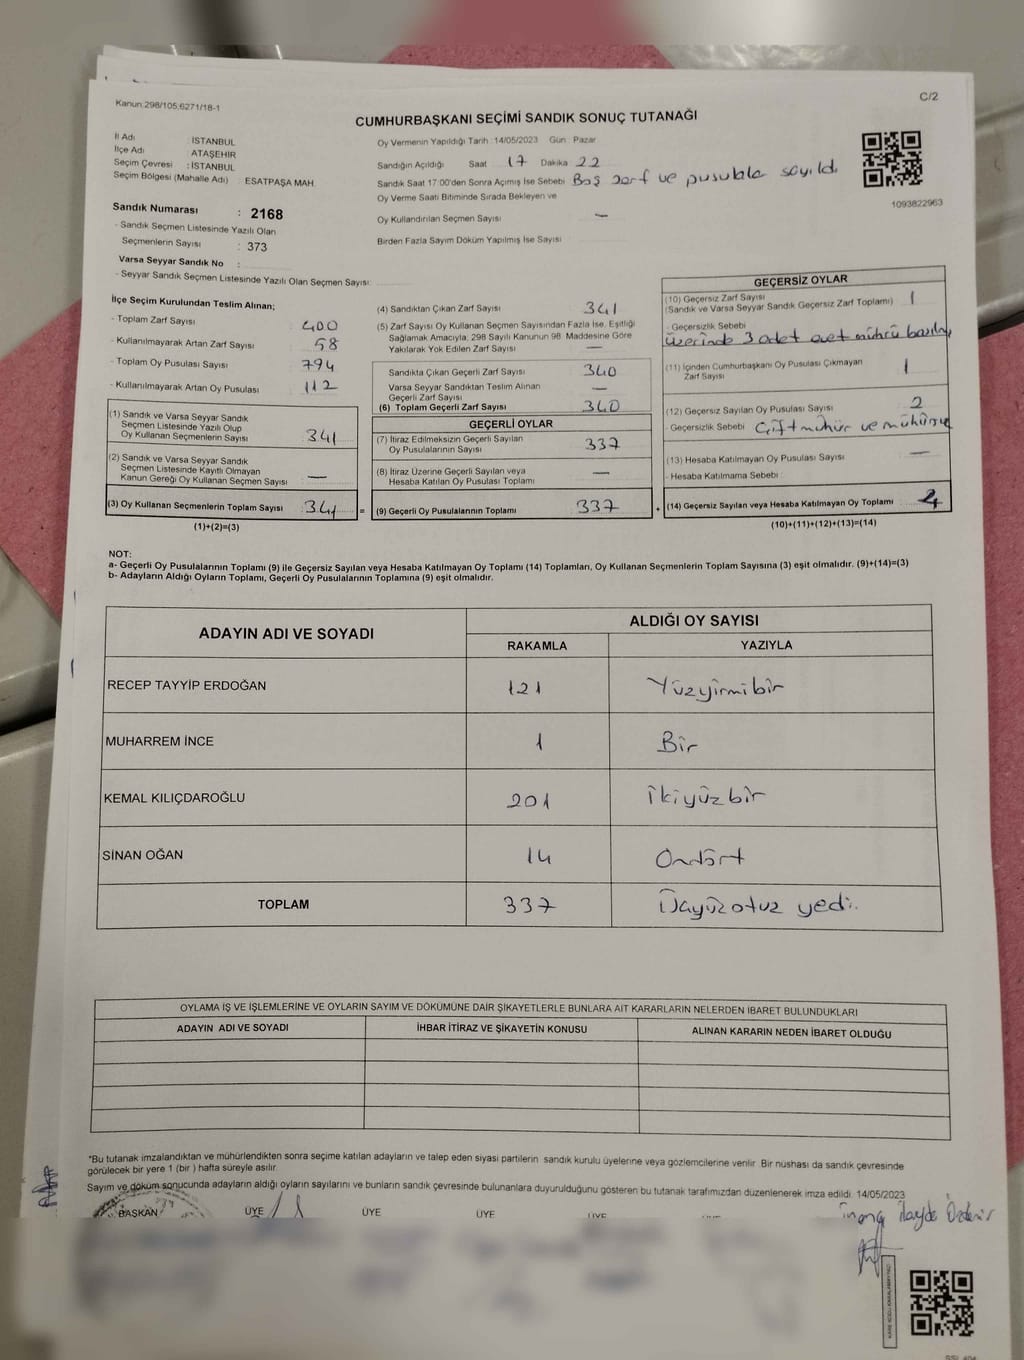 Kanun:298/105,6271/18-1
C/2
CUMHURBAŞKANI SEÇİMİ SANDIK SONUÇ TUTANAĞI
İl Adı : İSTANBUL
İlçe Adı : ATAŞEHİR
Seçim Çevresi : İSTANBUL
Seçim Bölgesi (Mahalle Adı) : ESATPAŞA MAH.
Sandık Numarası : 2168
- Sandık Seçmen Listesinde Yazılı Olan
Seçmenlerin Sayısı : 373
Varsa Seyyar Sandık No :
- Seyyar Sandık Seçmen Listesinde Yazılı Olan Seçmen Sayısı:
Oy Vermenin Yapıldığı Tarih : 14/05/2023 Gün : Pazar
Sandığın Açıldığı Saat 17 Dakika 22
Sandık Saat 17:00'den Sonra Açımış İse Sebebi Boş zarf ve pusulalar sayıldı
Oy Verme Saati Bitiminde Sırada Bekleyen ve
Oy Kullandırılan Seçmen Sayısı —
Birden Fazla Sayım Döküm Yapılmış İse Sayısı
1093822963
İlçe Seçim Kurulundan Teslim Alınan;
- Toplam Zarf Sayısı 400
- Kullanılmayarak Artan Zarf Sayısı 58
- Toplam Oy Pusulası Sayısı 794
- Kullanılmayarak Artan Oy Pusulası 112
(1) Sandık ve Varsa Seyyar Sandık
Seçmen Listesinde Yazılı Olup
Oy Kullanan Seçmenlerin Sayısı 341
(2) Sandık ve Varsa Seyyar Sandık
Seçmen Listesinde Kayıtlı Olmayan
Kanun Gereği Oy Kullanan Seçmen Sayısı —
(3) Oy Kullanan Seçmenlerin Toplam Sayısı 341 =
(1)+(2)=(3)
(4) Sandıktan Çıkan Zarf Sayısı 341
(5) Zarf Sayısı Oy Kullanan Seçmen Sayısından Fazla İse, Eşitliği
Sağlamak Amacıyla, 298 Sayılı Kanunun 98. Maddesine Göre
Yakılarak Yok Edilen Zarf Sayısı —
Sandıkta Çıkan Geçerli Zarf Sayısı 340
Varsa Seyyar Sandıktan Teslim Alınan
Geçerli Zarf Sayısı —
(6) Toplam Geçerli Zarf Sayısı 340
GEÇERLİ OYLAR
(7) İtiraz Edilmeksizin Geçerli Sayılan
Oy Pusulalarının Sayısı 337
(8) İtiraz Üzerine Geçerli Sayılan veya
Hesaba Katılan Oy Pusulası Toplamı —
(9) Geçerli Oy Pusulalarının Toplamı 337 +
GEÇERSİZ OYLAR
(10) Geçersiz Zarf Sayısı
(Sandık ve Varsa Seyyar Sandık Geçersiz Zarf Toplamı) 1
- Geçersizlik Sebebi
üzerinde 3 adet evet mührü basılmış
(11) İçinden Cumhurbaşkanı Oy Pusulası Çıkmayan
Zarf Sayısı 1
(12) Geçersiz Sayılan Oy Pusulası Sayısı 2
- Geçersizlik Sebebi Çift mühür ve mühürsüz
(13) Hesaba Katılmayan Oy Pusulası Sayısı —
- Hesaba Katılmama Sebebi
(14) Geçersiz Sayılan veya Hesaba Katılmayan Oy Toplamı 4
(10)+(11)+(12)+(13)=(14)
NOT:
a- Geçerli Oy Pusulalarının Toplamı (9) ile Geçersiz Sayılan veya Hesaba Katılmayan Oy Toplamı (14) Toplamları, Oy Kullanan Seçmenlerin Toplam Sayısına (3) eşit olmalıdır. (9)+(14)=(3)
b- Adayların Aldığı Oyların Toplamı, Geçerli Oy Pusulalarının Toplamına (9) eşit olmalıdır.
ADAYIN ADI VE SOYADI
ALDIĞI OY SAYISI
RAKAMLA YAZIYLA
RECEP TAYYİP ERDOĞAN 121 Yüzyirmibir
MUHARREM İNCE 1 Bir
KEMAL KILIÇDAROĞLU 201 İkiyüzbir
SİNAN OĞAN 14 Ondört
TOPLAM 337 Üçyüzotuz yedi
OYLAMA İŞ VE İŞLEMLERİNE VE OYLARIN SAYIM VE DÖKÜMÜNE DAİR ŞİKAYETLERLE BUNLARA AİT KARARLARIN NELERDEN İBARET BULUNDUKLARI
ADAYIN ADI VE SOYADI İHBAR İTİRAZ VE ŞİKAYETİN KONUSU ALINAN KARARIN NEDEN İBARET OLDUĞU
*Bu tutanak imzalandıktan ve mühürlendikten sonra seçime katılan adayların ve talep eden siyasi partilerin sandık kurulu üyelerine veya gözlemcilerine verilir. Bir nüshası da sandık çevresinde
görülecek bir yere 1 (bir ) hafta süreyle asılır.
Sayım ve döküm sonucunda adayların aldığı oyların sayılarını ve bunların sandık çevresinde bulunanlara duyurulduğunu gösteren bu tutanak tarafımızdan düzenlenerek imza edildi. 14/05/2023
BAŞKAN ÜYE ÜYE ÜYE ÜYE ÜYE